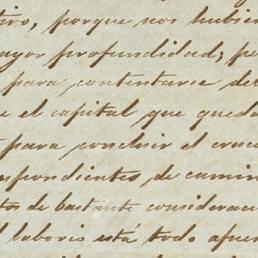 tivo, porque nos hubie
ayor profundidad; pe
para contentarse de
e el capital que queda
para concluir el cruce
spondientes de camin
tos de bastante considerac
l laborio está todo afue